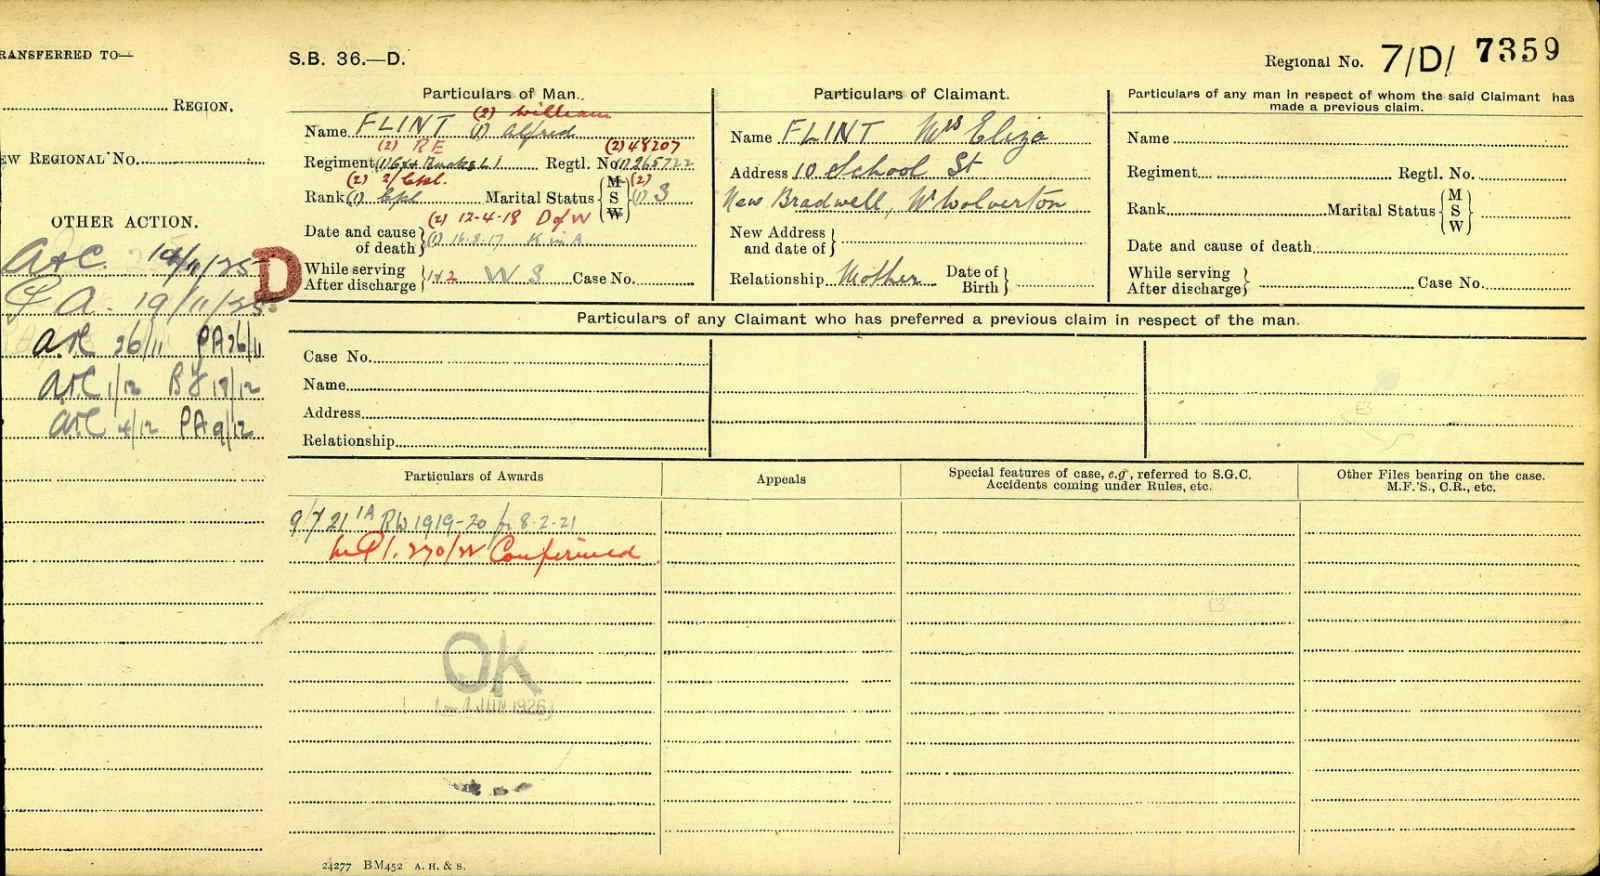 RANSFERRED TO—
REGION.
EW REGIONAL No.
OTHER ACTION.
A&C. 19/11/25
P A. 19/11/25
A&C 26/11 PA 26/11
A&C 1/12 BF 18/12
A&C 4/12 PA 9/12
D
S.B. 36.—D.
Regional No. 7/D/ 7359
Particulars of Man.
(2) William
Name FLINT (1) Alfred
(2) RE (2) 48207
Regiment (1) Bucks L I Regtl. No. (1) 265722
(2) 2/Cpl. (2)
Rank (1) Cpl Marital Status { M S W (1) S
(2) 12-4-18 D of W
Date and cause of death } (1) 16.8.17 K in A
While serving
After discharge } 1+2 W S Case No.
Particulars of Claimant.
Name FLINT Mrs Eliza
Address 10 School St
New Bradwell, Wolverton
New Address
and date of }
Relationship Mother Date of Birth }
Particulars of any man in respect of whom the said Claimant has
made a previous claim.
Name
Regiment Regtl. No.
Rank Marital Status { M S W
Date and cause of death
While serving
After discharge } Case No.
Particulars of any Claimant who has preferred a previous claim in respect of the man.
Case No.
Name
Address
Relationship
Particulars of Awards
9/7 21 1A RW 1919-20 fr 8-2-21
270/22 Confirmed
OK
JUN 1926
Appeals
Special features of case, e.g., referred to S.G.C.
Accidents coming under Rules, etc.
Other Files bearing on the case.
M.F.'S., C.R., etc.
24277 BM452 A. H. & S.